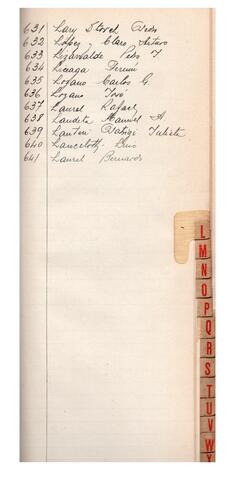 631 Lary Storch Dres
632 López Claro Arturo
633 Lizarralde Pedro T
634 Luciaga Fermín
635 Lozano Carlos G.
636 Lozano José
637 Laurel Rafael
638 Landeta Manuel A.
639 Lanteri Julieta
640 Lancelotti Lino
641 Laurel Bernardo
L
M
N
O
P
Q
R
S
T
U
V
W
Y